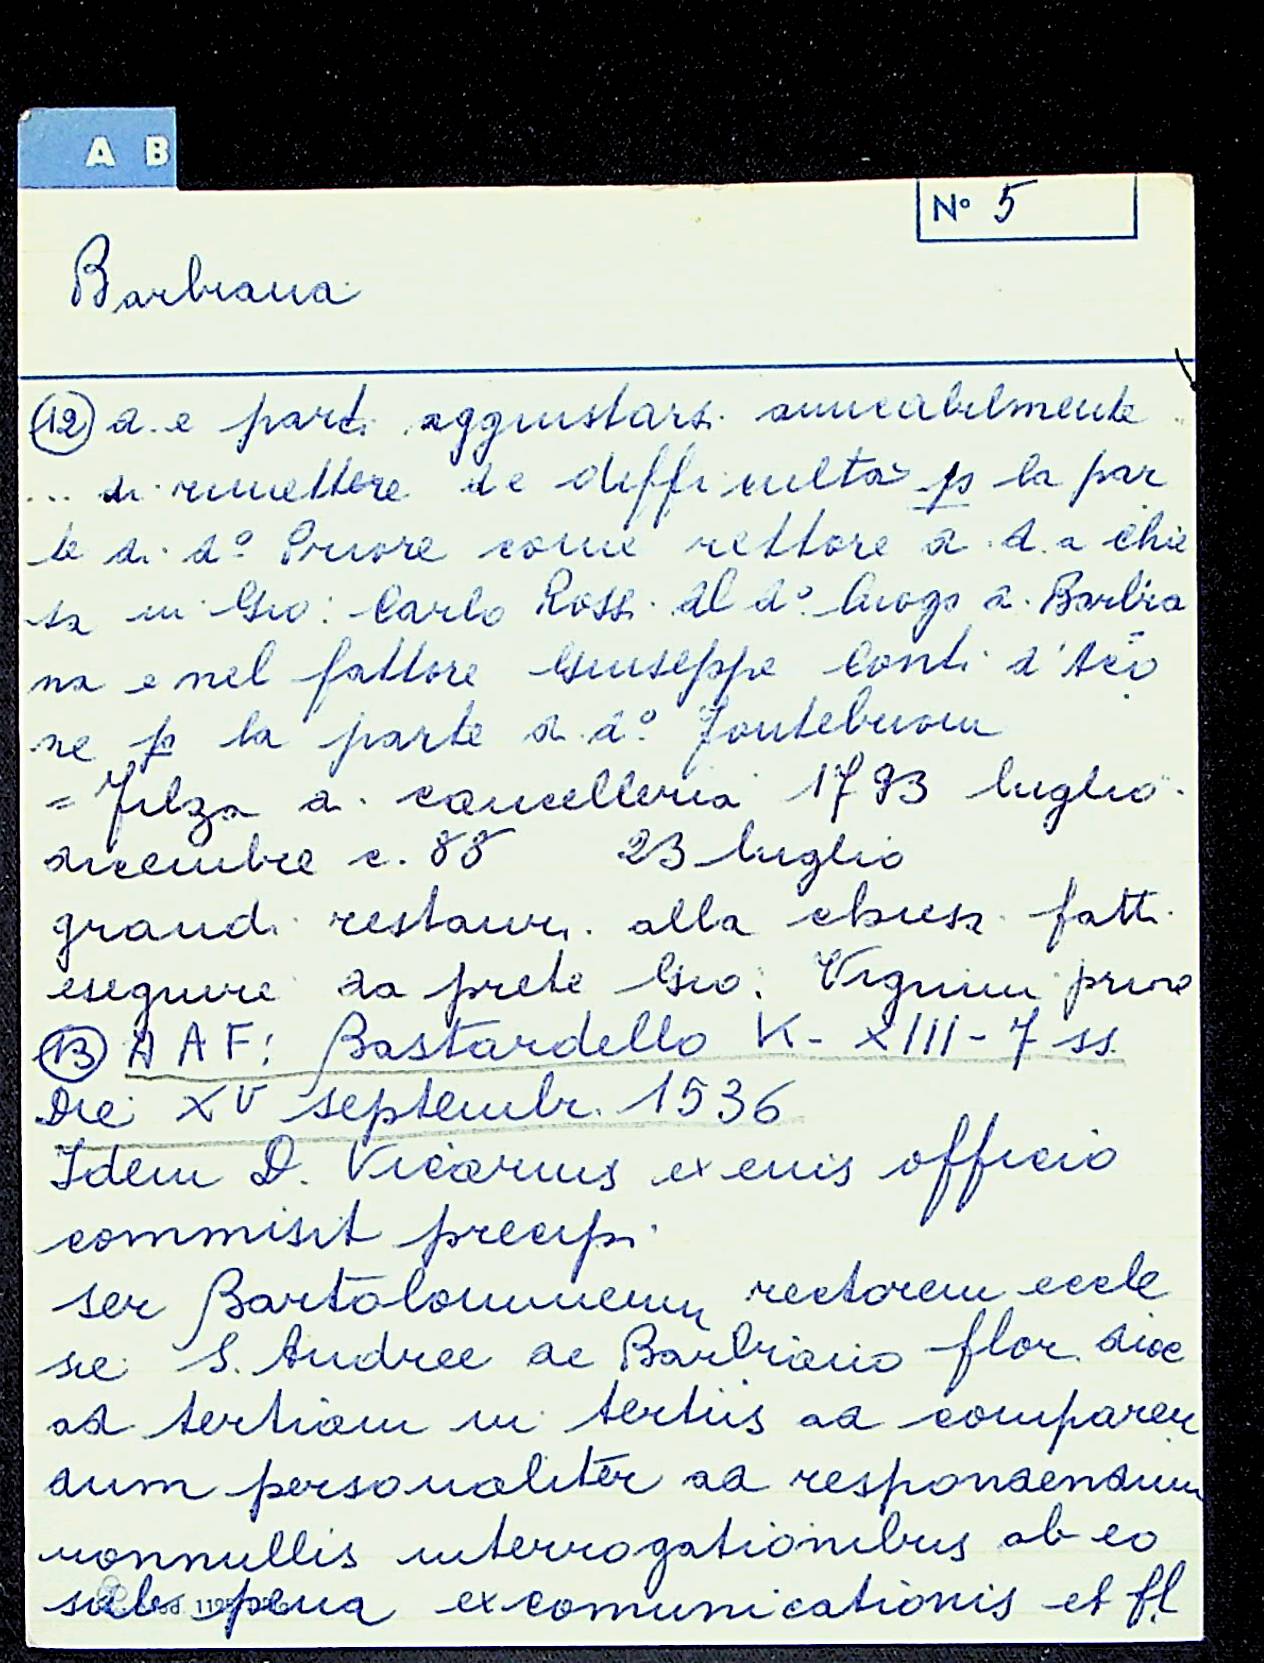 A B
N° 5
Barbiana
(12) d.e parti aggiustarsi amicabilmente
... di rimettere le difficultà p la par
te di d° Priore come rettore d. d.a chie
sa in Gio: Carlo Rossi al d° luogo d. Barbia
na e nel fattore Giuseppe Conti d'
ne p la parte d. d° Fontebuoni
= Filza d. cancelleria 1793 luglio
dicembre c. 88 23 luglio
grandi restauri alla chiesa fatti
eseguire da prete Gio: Vignini prio
(13) A A F: Bastardello K - XIII - 7 ss.
Die XV septembr. 1536
Idem D. Vicarius ex eius officio
commisit precipi
ser Bartolommeum rectorem eccle
sie S. Andree de Barbiano flor. dioc
ad tertiam in tertiis ad comparen
dum personaliter ad respondendum
nonnullis interrogationibus ab eo
sub pena excomunicationis et fl